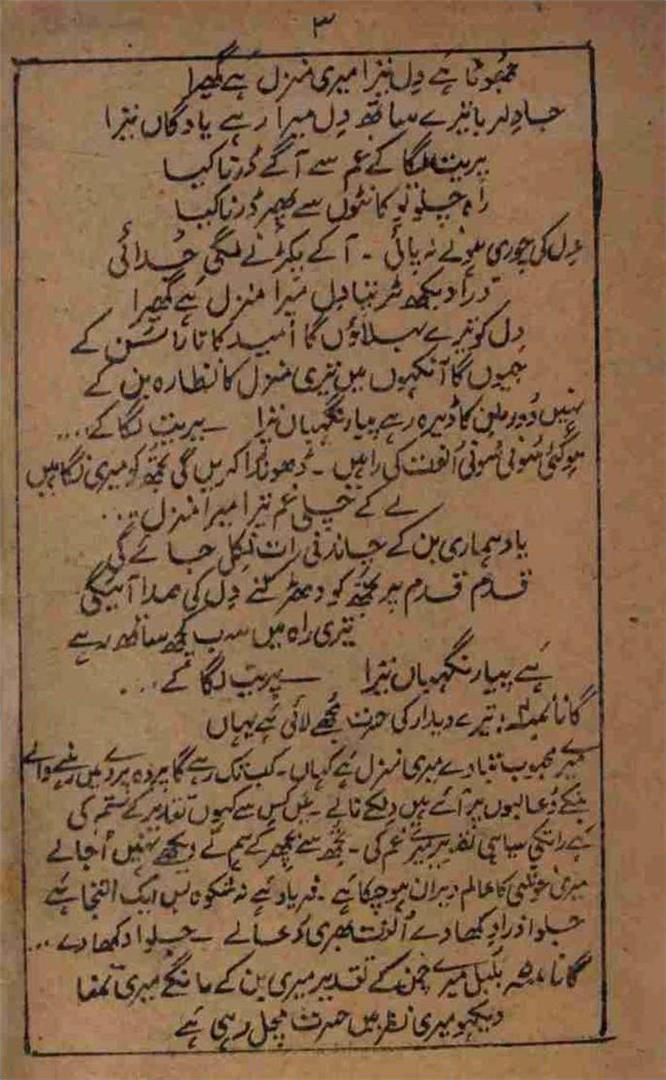 ۳
جھوٹا ہے دِل تیرا میری منزل ہے گھیرا
جا دلربا تیرے ساتھ دِل میرا رہے یادگاں تیرا
پریت لگا کے غم سے آگے ڈرنا کیا
راہ چلو تو کانٹوں سے پھر ڈرنا کیا
دِل کی چوری ہونے نہ پائی ۔ آکے پکڑنے لگی خُدائی
ذرا دیکھ تنہا دِل میرا منزل ہے گھیرا
دِل کو تیرے بہلاؤں گا اُمید کا تارا بن کے
جیوں گا آنکھوں میں تیری منزل کا نظارہ بن کے
نہیں دُور ملن کا ڈیرہ رہے پیار نگہباں تیرا ۔ پریت لگا کے ...
ہوگئی سُونی سُونی اُلفت کی راہیں ۔ ڈھونڈا کریں گی تجھ کو میری نگاہیں
لے کے چلی غم تیرا میرا منزل ...
یاد ہماری بن کے چاندنی رات نکل جائے گی
قدم قدم پر تجھ کو دھڑکنے دِل کی صدا آئیگی
تیری راہ میں سب کچھ ساتھ رہے
ہے پیار نگہباں تیرا ۔ پریت لگا کے ...
گانا نمبر : تیرے دیدار کی حسرت مجھے لائی ہے یہاں
میرے محبوب بتا دے میری منزل ہے کہاں ۔ کب تک رہے گا پردہ پردے میں رہنے والے
بنکے دُعا لبوں پر آئے ہیں دِلکے نالے ۔ کس سے کہوں تقدیر کے ستم کی
ہے رات کی سیاہی میرے غم کی ۔ تجھ سے بچھڑ کے ہم نے دیکھے نہیں اُجالے
میری خوشی کا عالم ویران ہوچکا ہے ۔ فریاد ہے نہ شکوہ بس ایک التجا ہے
جلوا ذرا دکھا دے اُلفت بھری دُعا لے ۔ جلوا دکھا دے ...
گانا بُلبُل میرے چمن کے تقدیر میری بن کے مانگے میری تمنا
دیکھو میری نظر میں حسرت مچل رہی ہے